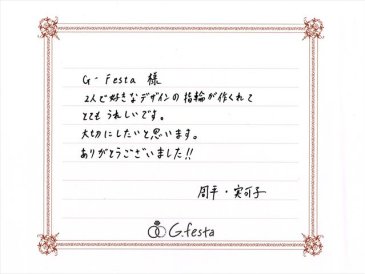 G-festa 様
2人で好きなデザインの指輪が作くれて
とてもうれしいです。
大切にしたいと思います。
ありがとうございました!!
周平・実可子
G.festa